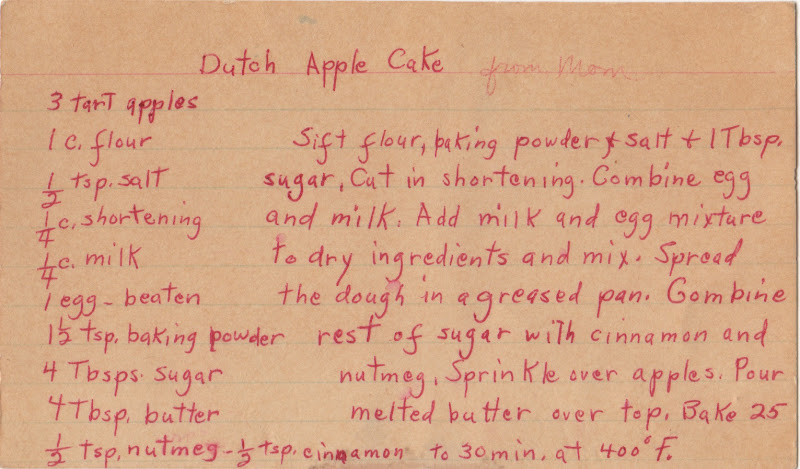 Dutch Apple Cake from Mom
3 tart apples
1 c. flour
1/2 tsp. salt
1/4 c. shortening
1/4 c. milk
1 egg - beaten
1 1/2 tsp. baking powder
4 Tbsps. sugar
4 Tbsp. butter
1/2 tsp. nutmeg - 1/2 tsp. cinnamon
Sift flour, baking powder & salt + 1 Tbsp.
sugar, Cut in shortening. Combine egg
and milk. Add milk and egg mixture
to dry ingredients and mix. Spread
the dough in a greased pan. Combine
rest of sugar with cinnamon and
nutmeg, Sprinkle over apples. Pour
melted butter over top. Bake 25
to 30 min. at 400° F.